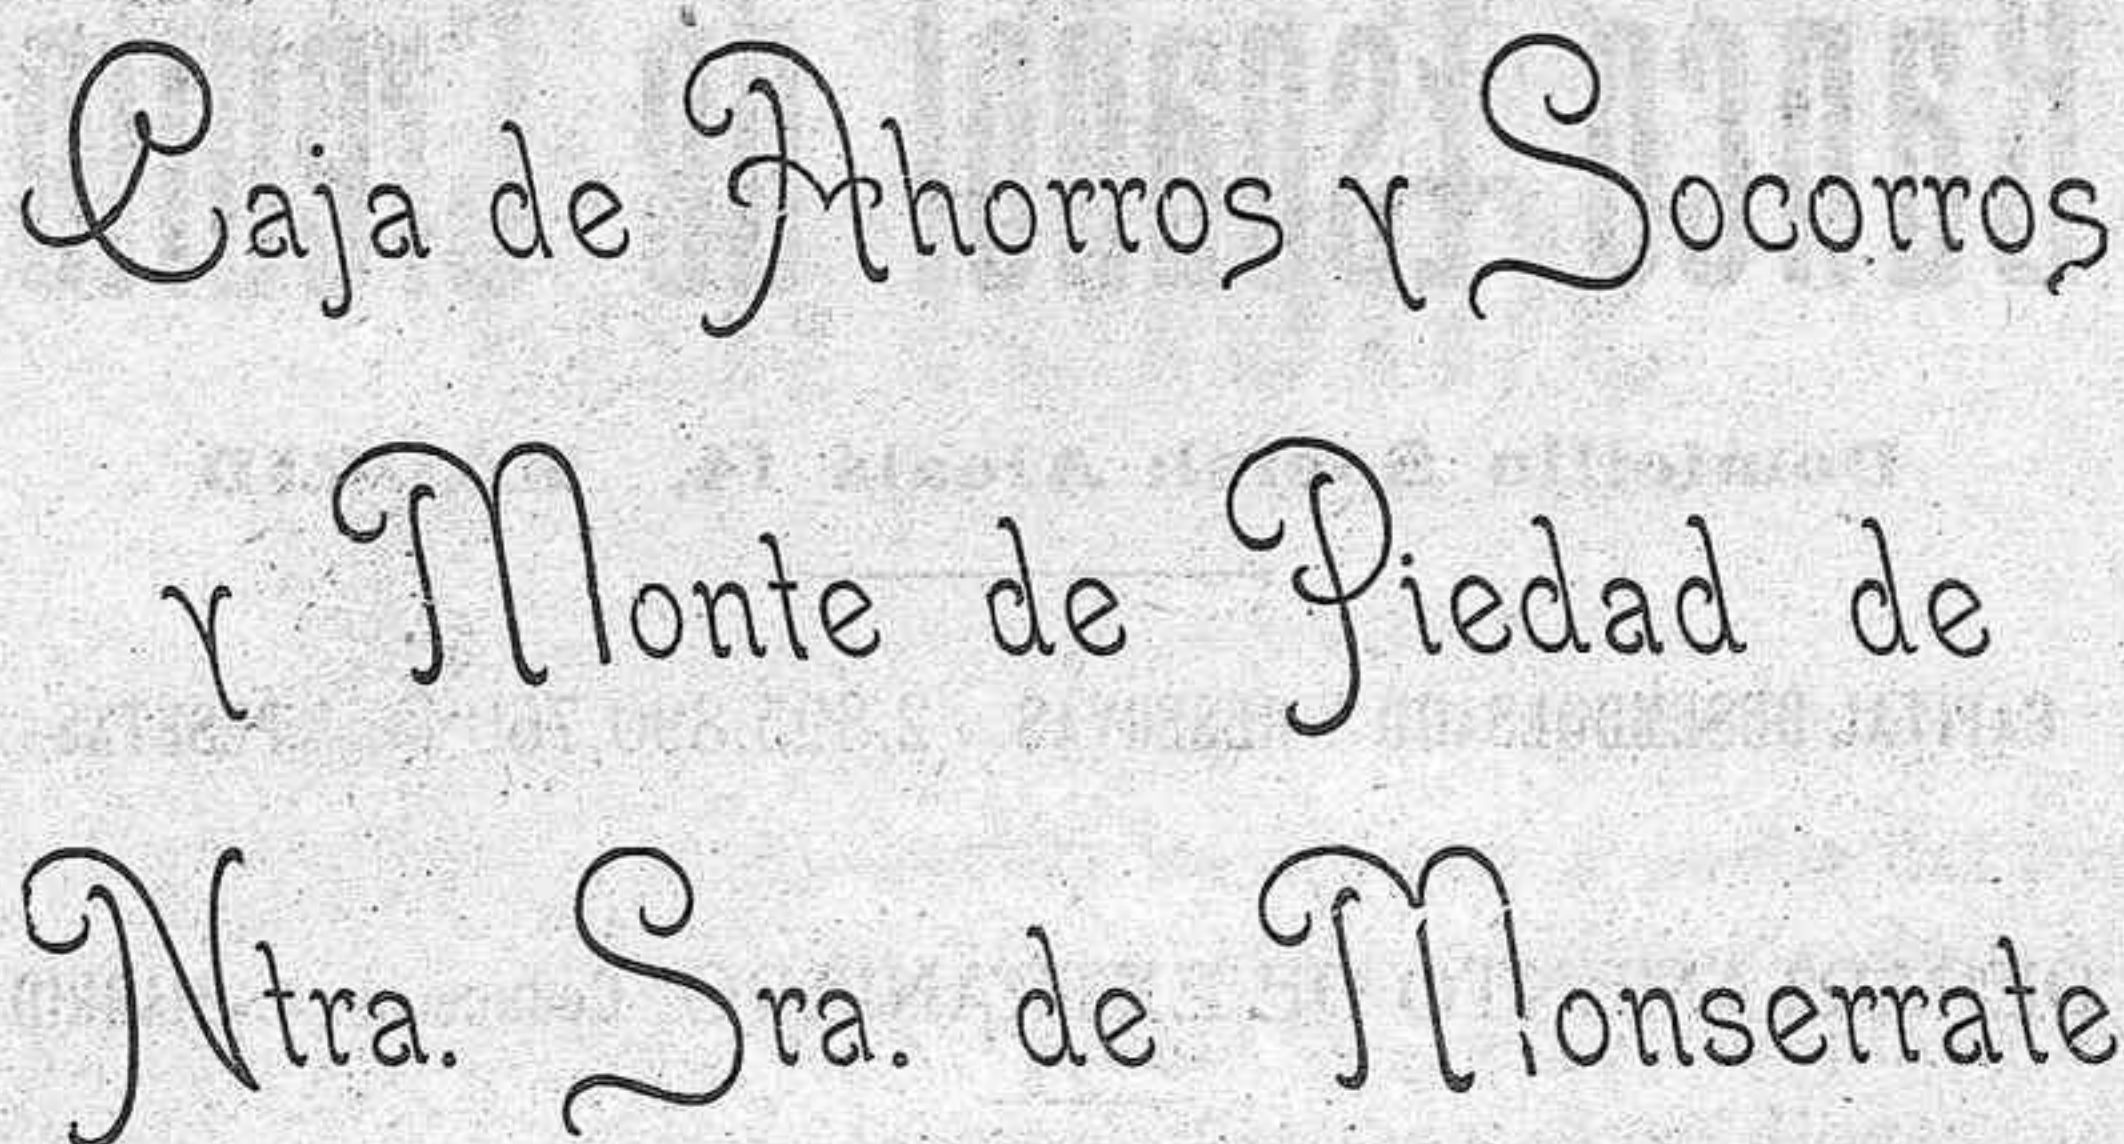 Caja de Ahorros y Socorros
y Monte de Piedad de
Ntra. Sra. de Monserrate